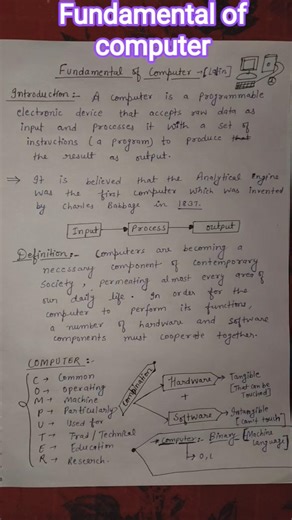 Fundamental of
computer
Fundamental of Computer → [Latin]
Introduction:- A Computer is a programmable
electronic device that accepts raw data as
input and processes it with a set of
instructions (a program) to produce that
the result as output.
⇒ It is believed that the Analytical Engine
was the first Computer which was invented
by Charles Babbage in 1837.
Input → Process → output
Definition:- Computers are becoming a
necessary component of contemporary
Society, permeating almost every area of
our daily life. In order for the
computer to perform its functions,
a number of hardware and software
components must cooperate together.
COMPUTER :-
C → Common
O → Operating
M → Machine
P → Particularly
U → Used for
T → Trad/Technical
E → Education
R → Research.
Combination
Hardware → Tangible
[That can be
Touched]
+
Software → Intangible
[Can't touch]
Computer:- Binary [Machine
language]
→ 0,1